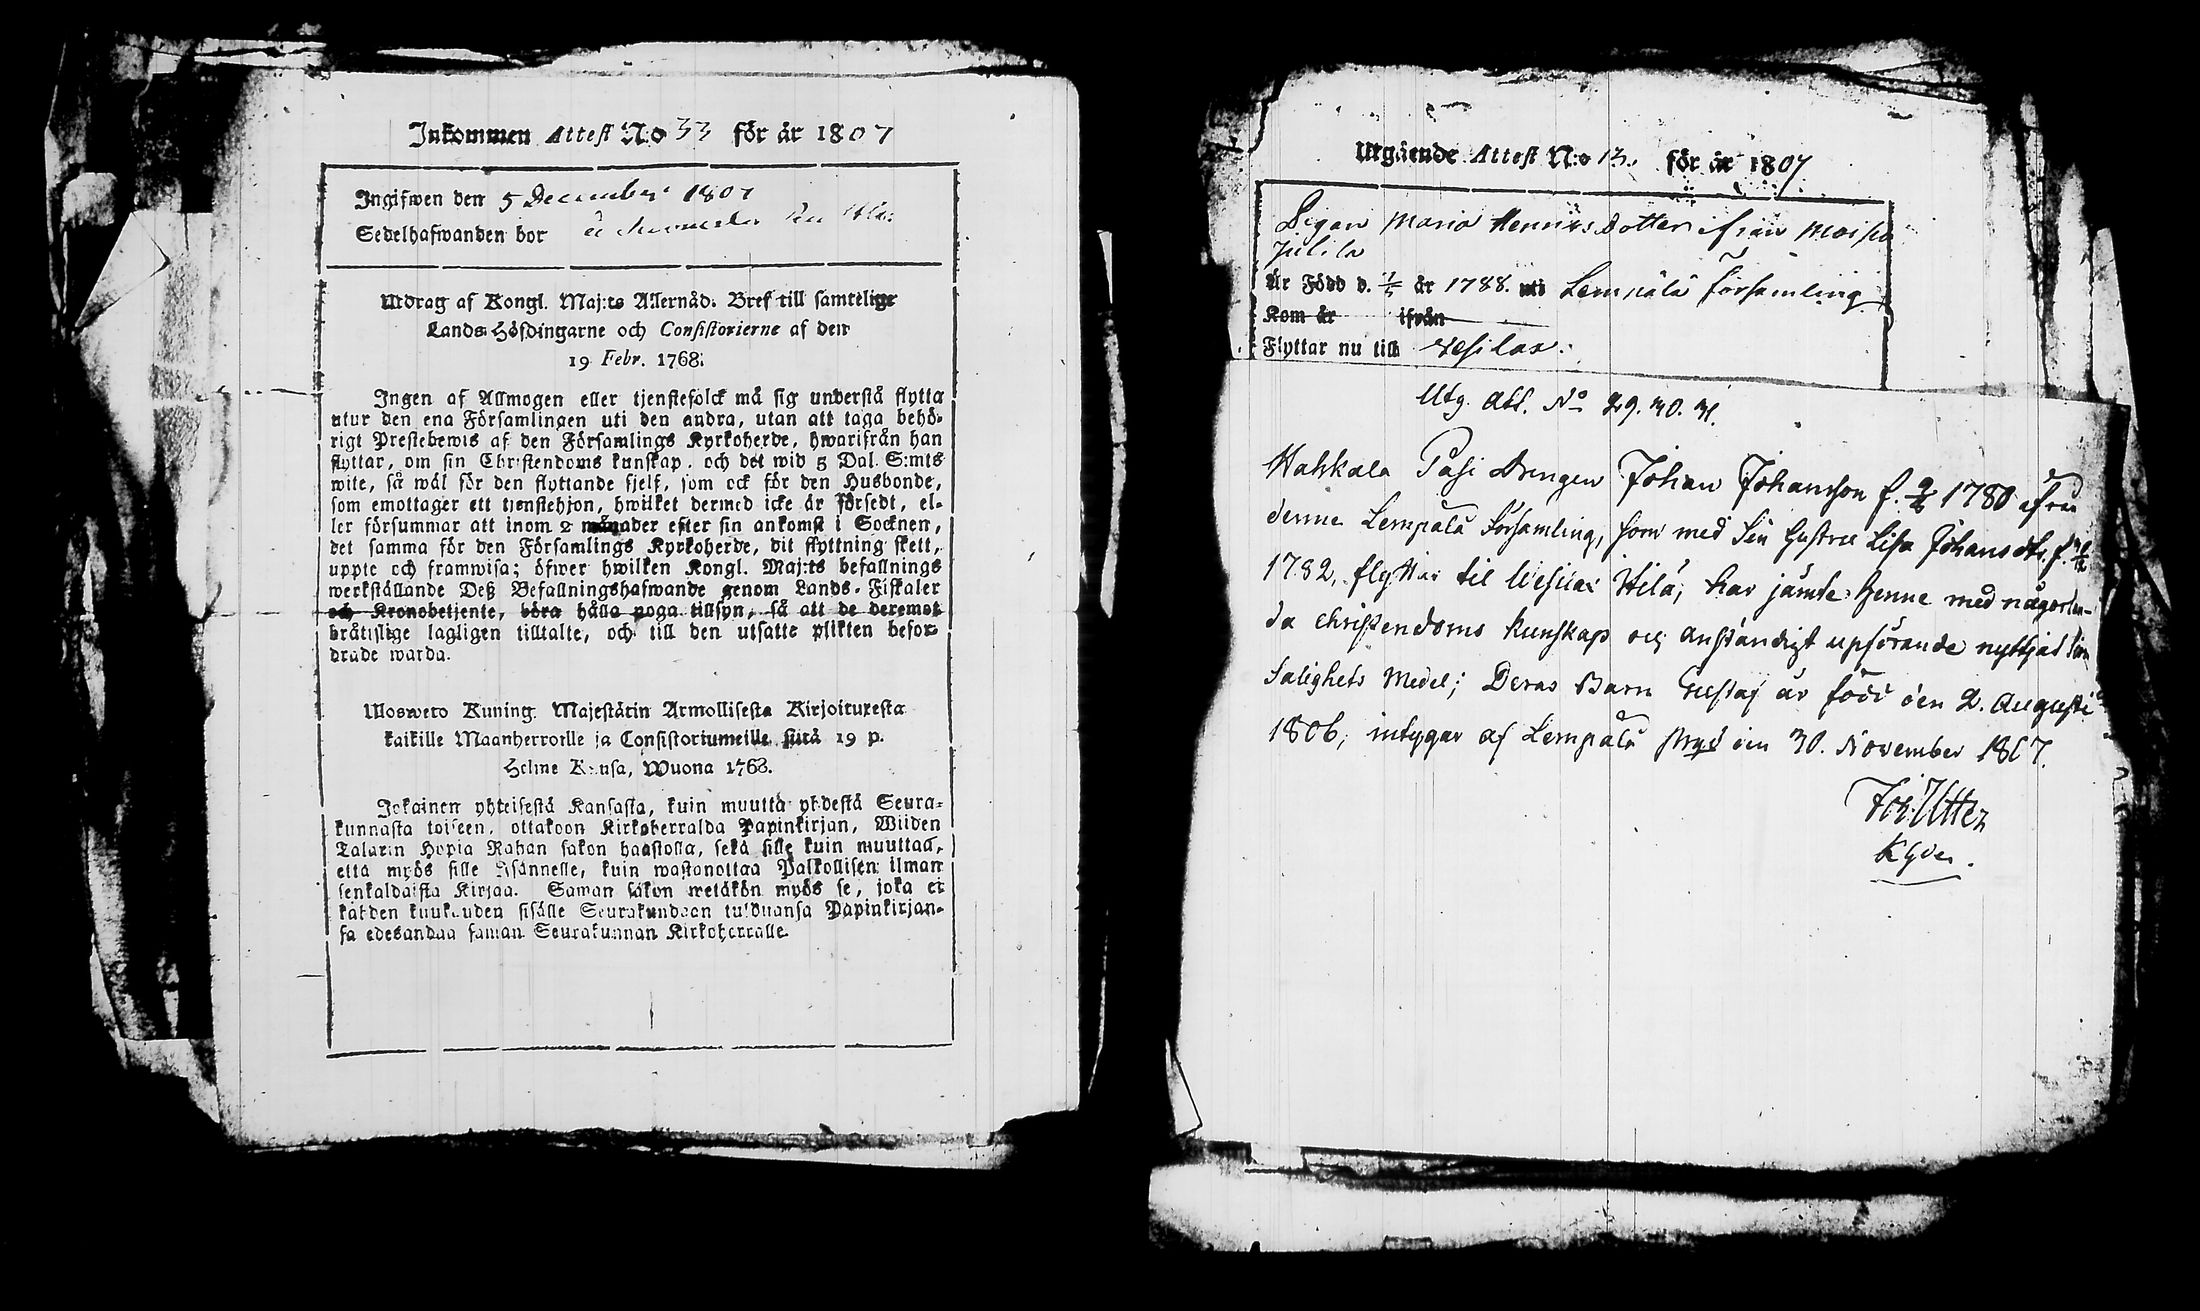 Inkommen Attest N:o 33 för år 1807
Ingifwen den 5 December 1807
Sedelhafwanden bor
Utdrag af Kongl. Maj:ts Allernåd. Bref till samtelige
Lands-Höfdingarne och Consistorierne af den
19 Febr. 1768.
Ingen af Allmogen eller tjenstefolck må sig understå flytta
utur den ena Församlingen uti den andra, utan att taga behö-
rigt Prestebewis af den Församlings Kyrkoherde, hwarifrån han
flyttar, om sin Christendoms kunskap, och det wid 5 Dal. S:mts
wite, så wäl för den flyttande sjelf, som ock för den Husbonde,
som emottager ett tjenstehjon, hwilket dermed icke är försedt, el-
ler försummar att inom 2 månader efter sin ankomst i Socknen,
det samma för den Församlings Kyrkoherde, dit flyttning skett,
uppte och framwisa; öfwer hwilken Kongl. Maj:ts befallnings
werkställande Deß Befallningshafwande genom Lands-Fiskaler
och Kronobetjente, böra hålla noga tillsyn, så att de deremot
bråtislige lagligen tilltalte, och till den utsatte plikten befor-
drade warda.
Ulosweto Kuning. Majestätin Armollisesta Kirjoituresta
kaikille Maanherroille ja Consistoriumeille siitä 19 p.
Helme Kuusa, Wuona 1768.
Jokainen yhteisestä Kansasta, kuin muutta yhdestä Seura-
kunnasta toiseen, ottakoon Kirkoherralda Papinkirjan, Wiiden
Talarin Hopia Rahan sakon haastolla, sekä sille kuin muuttaa,
että myös sille Isännelle, kuin wastanottaa Palkollisen ilman
senkaldaista Kirjaa. Saman sakon wetäkön myös se, joka ei
kahden kuukauden sisälle Seurakundaan tulduansa Papinkirjan-
sa edesandaa saman Seurakunnan Kirkoherralle.
Utgående Attest N:o 13. för år 1807
Pigan Maria Henricsdotter ifrån Moisio
Julila
Är Född d. 1/5 år 1788. uti Lempälä Församling
Kom år ifrån
Flyttar nu till Vesilax.
Utg. Att. No 29. 30. 31.
Hahkala Pasi Drengen Johan Johansson f. 1780 ifrån
denne Lempälä Församling, som med Sin Hustru Lisa Johansdtr, f.
1782, flyttar til Wesilax Hilä, har jämte henne med någorlun-
da christendoms kunskap och anständigt upförande nyttjat sina
Salighets Medel; Deras Barn Gustaf är född den 2. Augusti
1806, intygar af Lempälä Prgd den 30. November 1807.